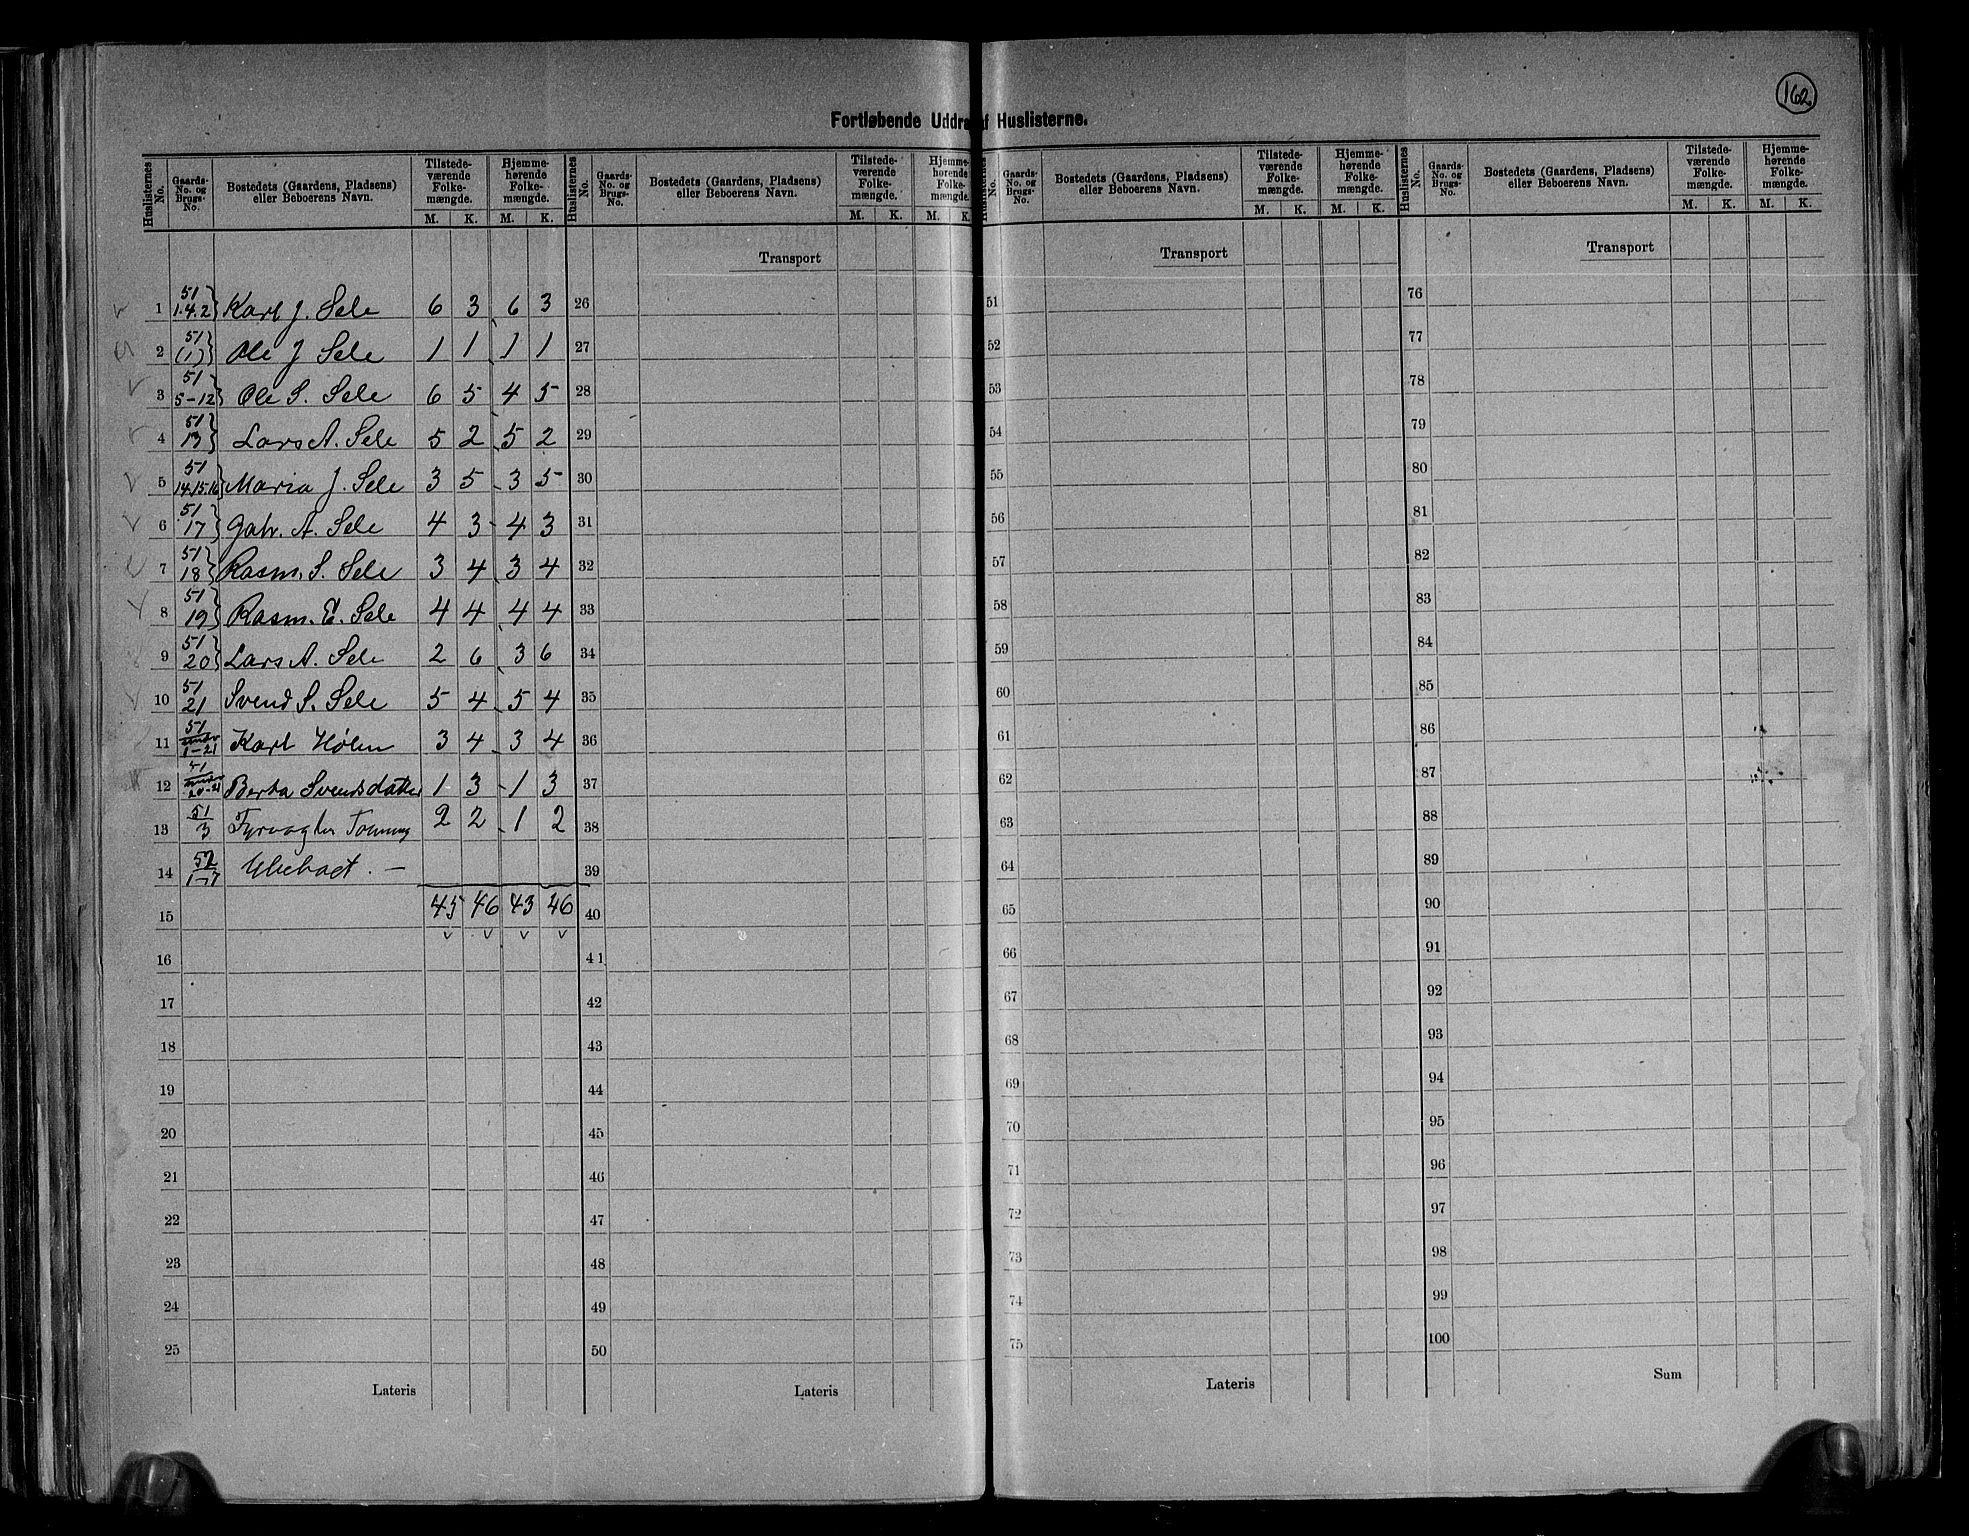 162
Fortløbende Uddra af Huslisterne.
Huslisternes No. Gaards-No. og Brugs-No. Bostedets (Gaardens, Pladsens) eller Beboerens Navn. Tilstedeværende Folkemængde. M. K. Hjemmehørende Folkemængde. M. K.
Huslisternes No. Gaards-No. og Brugs-No. Bostedets (Gaardens, Pladsens) eller Beboerens Navn. Tilstedeværende Folkemængde. M. K. Hjemmehørende Folkemængde. M. K.
Huslisternes No. Gaards-No. og Brugs-No. Bostedets (Gaardens, Pladsens) eller Beboerens Navn. Tilstedeværende Folkemængde. M. K. Hjemmehørende Folkemængde. M. K.
Huslisternes No. Gaards-No. og Brugs-No. Bostedets (Gaardens, Pladsens) eller Beboerens Navn. Tilstedeværende Folkemængde. M. K. Hjemmehørende Folkemængde. M. K.
Transport Transport Transport
1 51 1.4.2 Karl J. Sele 6 3 6 3 26 51 76
2 51 (1) Ole J Sele 1 1 1 1 27 52 77
3 51 5-12 Ole S. Sele 6 5 4 5 28 53 78
4 51 13 Lars A. Sele 5 2 5 2 29 54 79
5 51 14.15.16 Maria J. Sele 3 5 3 5 30 55 80
6 51 17 Gabr. A. Sele 4 3 4 3 31 56 81
7 51 18 Rasm. S. Sele 3 4 3 4 32 57 82
8 51 19 Rasm. E. Sele 4 4 4 4 33 58 83
9 51 20 Lars A. Sele 2 6 3 6 34 59 84
10 51 21 Svend S. Sele 5 4 5 4 35 60 85
11 51 1-21 Karl Hølen 3 4 3 4 36 61 86
12 51 20-21 Berta Svendsdatter 1 3 1 3 37 62 87
13 51 3 Fyrvogter 2 2 1 2 38 63 88
14 52 1-7 Ubeboet. — 39 64 89
15 45 46 43 46 40 65 90
16 41 66 91
17 42 67 92
18 43 68 93
19 44 69 94
20 45 70 95
21 46 71 96
22 47 72 97
23 48 73 98
24 49 74 99
25 50 75 100
Lateris Lateris Lateris Sum